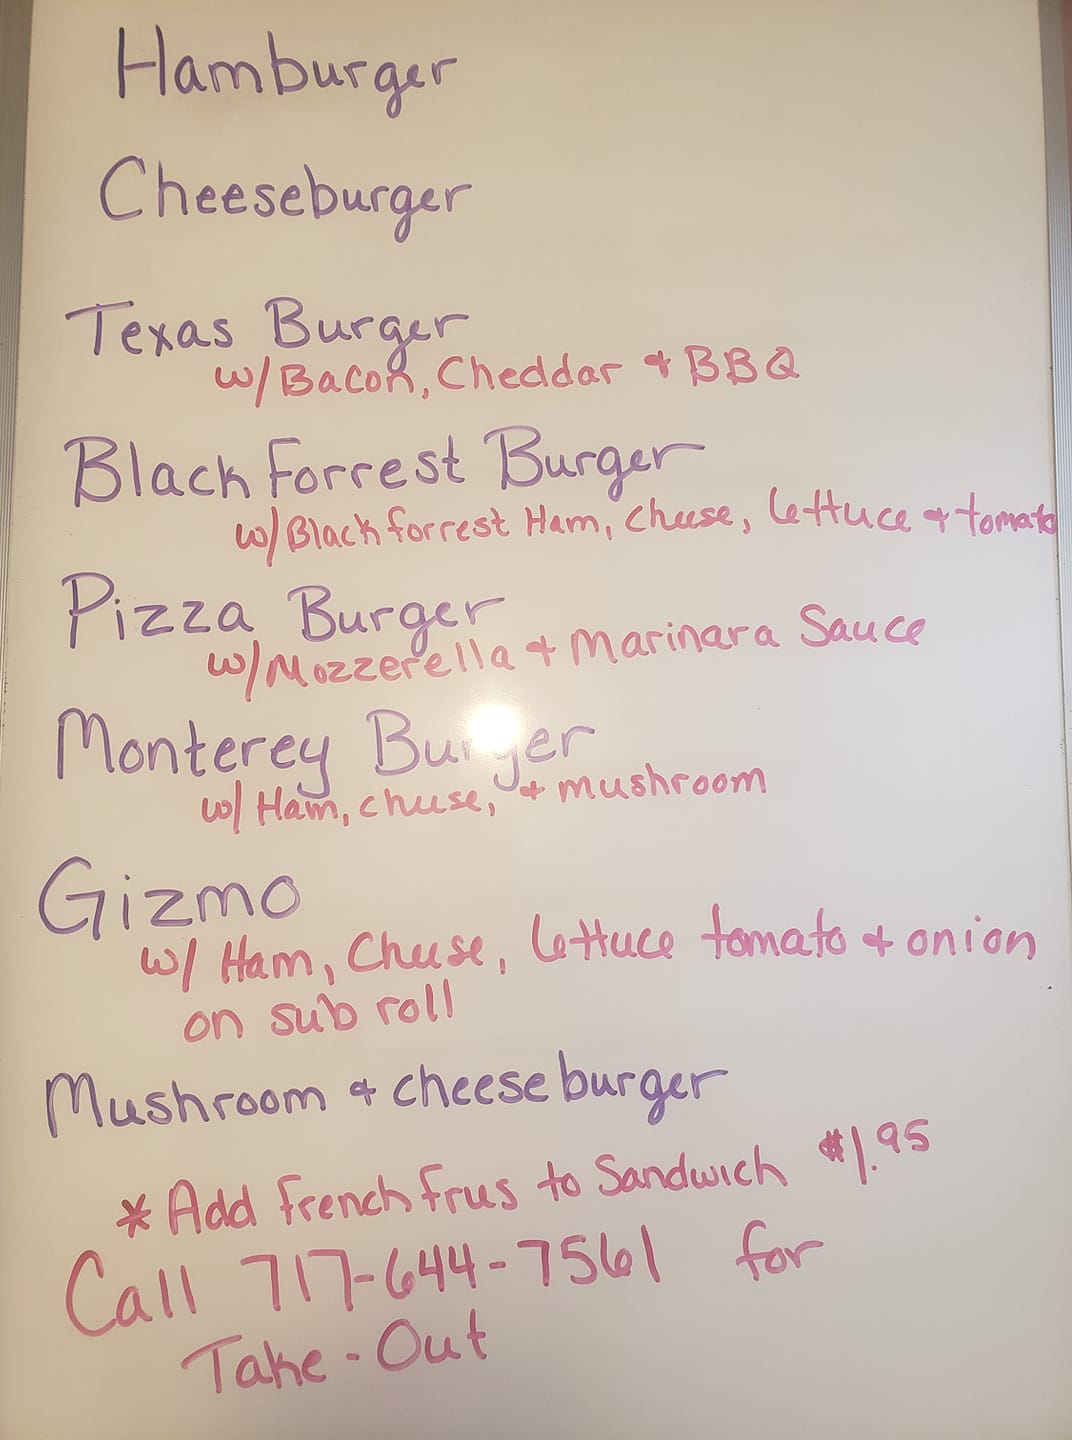 Hamburger
Cheeseburger
Texas Burger
w/Bacon, Cheddar & BBQ
Black Forrest Burger
w/Black forrest Ham, cheese, lettuce & tomato
Pizza Burger
w/Mozzerella & Marinara Sauce
Monterey Burger
w/ Ham, cheese, & mushroom
Gizmo
w/ Ham, Cheese, lettuce tomato & onion
on sub roll
Mushroom & cheeseburger
* Add French Fries to Sandwich $1.95
Call 717-644-7561 for
Take-Out